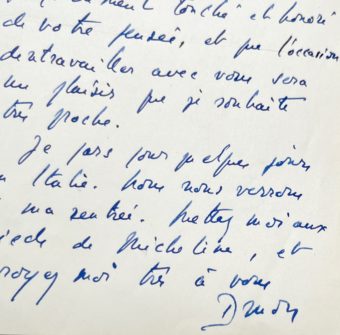 touché et honoré
de votre pensée, et que l'occasion
de travailler avec vous sera
un plaisir que je souhaite
très proche.
Je pars pour quelques jours
Italie. Nous nous verrons
ma rentrée. Mettez moi aux
pieds de Micheline, et
royez moi très à vous